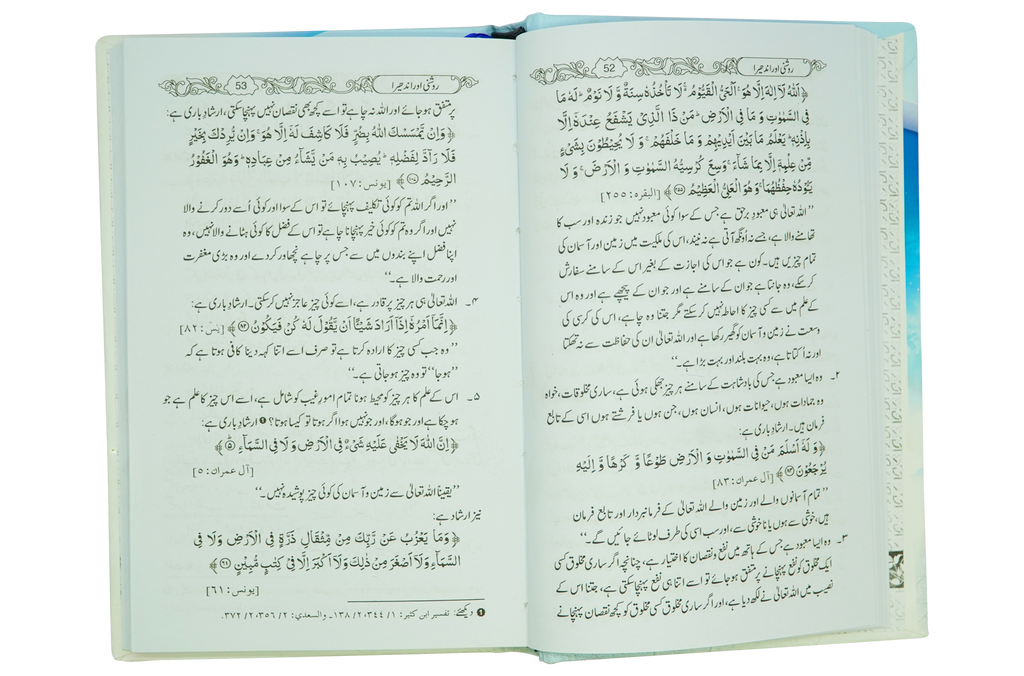 روشنی اور اندھیرا
52
﴿اَللّٰهُ لَاۤ اِلٰهَ اِلَّا هُوَ ۚ اَلْحَیُّ الْقَیُّوْمُ ۚ لَا تَاْخُذُهٗ سِنَةٌ وَّ لَا نَوْمٌ ؕ لَهٗ مَا
فِی السَّمٰوٰتِ وَ مَا فِی الْاَرْضِ ؕ مَنْ ذَا الَّذِیْ یَشْفَعُ عِنْدَهٗۤ اِلَّا
بِاِذْنِهٖ ؕ یَعْلَمُ مَا بَیْنَ اَیْدِیْهِمْ وَ مَا خَلْفَهُمْ ۚ وَ لَا یُحِیْطُوْنَ بِشَیْءٍ
مِّنْ عِلْمِهٖۤ اِلَّا بِمَا شَآءَ ۚ وَسِعَ کُرْسِیُّهُ السَّمٰوٰتِ وَ الْاَرْضَ ۚ وَ لَا
یَـُٔوْدُهٗ حِفْظُهُمَا ۚ وَ هُوَ الْعَلِیُّ الْعَظِیْمُ ۲۵۵﴾ [البقرہ: ۲۵۵]
’’اللہ تعالیٰ ہی معبودِ برحق ہے جس کے سوا کوئی معبود نہیں جو زندہ اور سب کا
تھامنے والا ہے، جسے نہ اونگھ آتی ہے نہ نیند، اس کی ملکیت میں زمین اور آسمان کی
تمام چیزیں ہیں۔ کون ہے جو اس کی اجازت کے بغیر اس کے سامنے سفارش
کر سکے، وہ جانتا ہے جو ان کے سامنے ہے اور جو ان کے پیچھے ہے اور وہ اس
کے علم میں سے کسی چیز کا احاطہ نہیں کر سکتے مگر جتنا وہ چاہے، اس کی کرسی کی
وسعت نے زمین و آسمان کو گھیر رکھا ہے اور اللہ تعالیٰ ان کی حفاظت سے نہ تھکتا
اور نہ اُکتاتا ہے، وہ بہت بلند اور بہت بڑا ہے۔‘‘
۲۔ وہ ایسا معبود ہے جس کی بادشاہت کے سامنے ہر چیز جھکی ہوئی ہے، ساری مخلوقات، خواہ
وہ جمادات ہوں، حیوانات ہوں، انسان ہوں، جن ہوں یا فرشتے ہوں اسی کے تابع
فرمان ہیں۔ ارشادِ باری ہے:
﴿وَ لَهٗۤ اَسْلَمَ مَنْ فِی السَّمٰوٰتِ وَ الْاَرْضِ طَوْعًا وَّ كَرْهًا وَّ اِلَیْهِ
یُرْجَعُوْنَ ۸۳﴾ [آل عمران: ۸۳]
’’تمام آسمانوں والے اور زمین والے اللہ تعالیٰ کے فرمانبردار اور تابع فرمان
ہیں، خوشی سے ہوں یا ناخوشی سے، اور سب اسی کی طرف لوٹائے جائیں گے۔‘‘
۳۔ وہ ایسا معبود ہے جس کے ہاتھ میں نفع و نقصان کا اختیار ہے، چنانچہ اگر ساری مخلوق کسی
ایک مخلوق کو نفع پہنچانے پر متفق ہو جائے تو اسے اتنا ہی نفع پہنچا سکتی ہے، جتنا اس کے
نصیب میں اللہ تعالیٰ نے لکھ دیا ہے، اور اگر ساری مخلوق کسی مخلوق کو کچھ نقصان پہنچانے
روشنی اور اندھیرا
53
پر متفق ہو جائے اور اللہ نہ چاہے تو اسے کچھ بھی نقصان نہیں پہنچا سکتی، ارشادِ باری ہے:
﴿وَ اِنْ یَّمْسَسْكَ اللّٰهُ بِضُرٍّ فَلَا كَاشِفَ لَهٗۤ اِلَّا هُوَ ۚ وَ اِنْ یُّرِدْكَ بِخَیْرٍ
فَلَا رَآدَّ لِفَضْلِهٖ ؕ یُصِیْبُ بِهٖ مَنْ یَّشَآءُ مِنْ عِبَادِهٖ ؕ وَ هُوَ الْغَفُوْرُ
الرَّحِیْمُ ۱۰۷﴾ [یونس: ۱۰۷]
’’اور اگر اللہ تم کو کوئی تکلیف پہنچائے تو اس کے سوا اور کوئی اُسے دور کرنے والا
نہیں اور اگر وہ تم کو کوئی خیر پہنچانا چاہے تو اس کے فضل کا کوئی ہٹانے والا نہیں، وہ
اپنا فضل اپنے بندوں میں سے جس پر چاہے نچھاور کر دے اور وہ بڑی مغفرت
اور رحمت والا ہے۔‘‘
۴۔ اللہ تعالیٰ ہی ہر چیز پر قادر ہے، اسے کوئی چیز عاجز نہیں کر سکتی۔ ارشادِ باری ہے:
﴿اِنَّمَاۤ اَمْرُهٗۤ اِذَاۤ اَرَادَ شَیْـًٔا اَنْ یَّقُوْلَ لَهٗ كُنْ فَیَكُوْنُ ۸۲﴾ [یٰسٓ: ۸۲]
’’وہ جب کسی چیز کا ارادہ کرتا ہے تو صرف اسے اتنا کہہ دینا کافی ہوتا ہے کہ
’’ہو جا‘‘ تو وہ چیز ہو جاتی ہے۔‘‘
۵۔ اس کے علم کا ہر چیز کو محیط ہونا تمام امورِ غیب کو شامل ہے، اسے اس چیز کا علم ہے جو
ہو چکا ہے اور جو ہو گا، اور جو نہیں ہوا اگر ہوتا تو کیسا ہوتا؟ ❶ ارشادِ باری ہے:
﴿اِنَّ اللّٰهَ لَا یَخْفٰی عَلَیْهِ شَیْءٌ فِی الْاَرْضِ وَ لَا فِی السَّمَآءِ ۵﴾
[آل عمران: ۵]
’’یقیناً اللہ تعالیٰ سے زمین و آسمان کی کوئی چیز پوشیدہ نہیں۔‘‘
نیز ارشاد ہے:
﴿وَ مَا یَعْزُبُ عَنْ رَّبِّكَ مِنْ مِّثْقَالِ ذَرَّةٍ فِی الْاَرْضِ وَ لَا فِی
السَّمَآءِ وَ لَاۤ اَصْغَرَ مِنْ ذٰلِكَ وَ لَاۤ اَكْبَرَ اِلَّا فِیْ كِتٰبٍ مُّبِیْنٍ ۶۱﴾
[یونس: ۶۱]
❶ دیکھئے: تفسیر ابن کثیر: ۱/ ۳٤٤، ۲/ ۱۳۸۔ والسعدی: ۲/ ۳٥٦، ۲/ ۳۷۲.